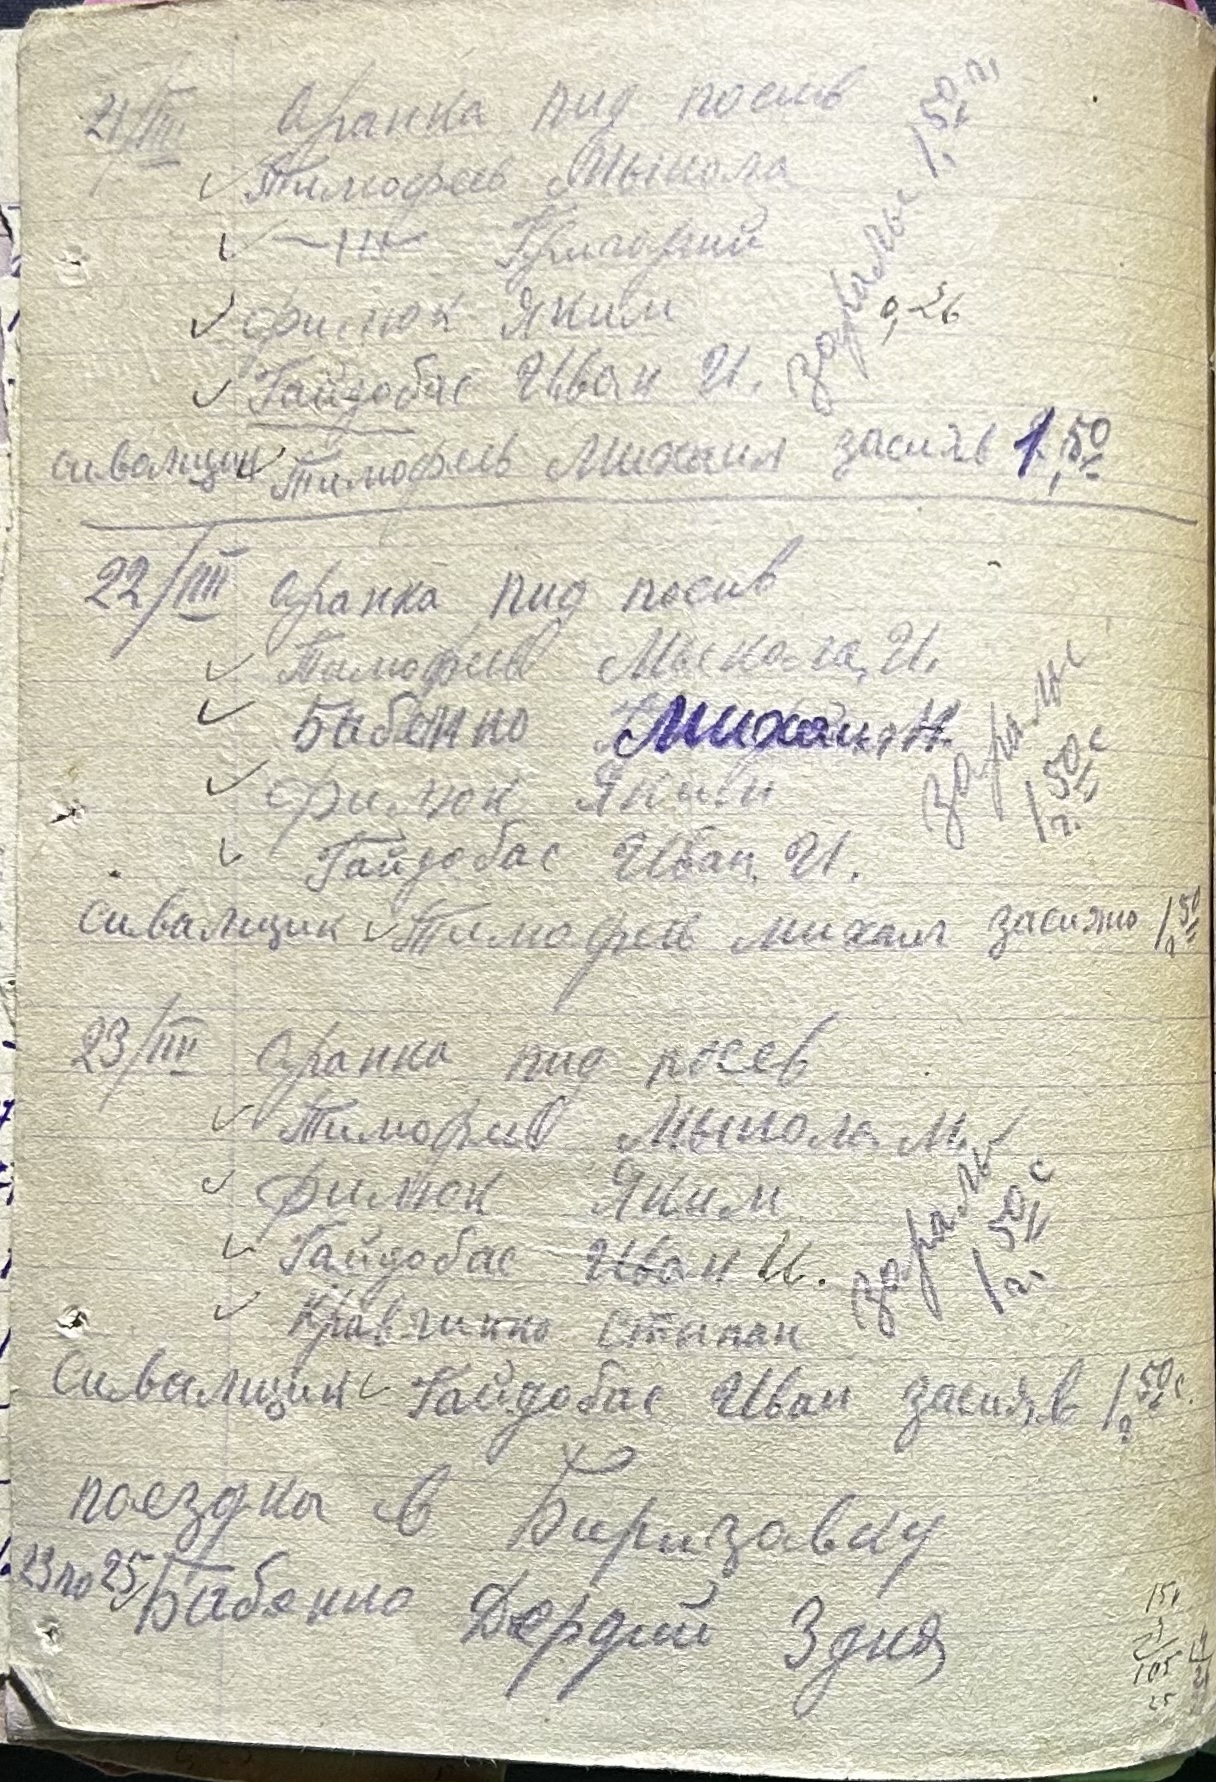 21/III Аранка пид посив
✓ Тимофеев Мыкола
✓ —ııı— Григорий
✓ Филюк Яким 0,26
✓ Гайдобас Иван И.
заралы с 1,50 га
сивалщик ✓ Тимофеев Михаил засияв 1,50
22/III Аранка пид посив
✓ Тимофеев Мыкола И.
✓ Бабенко Михаил Н.
✓ Филюк Яким
✓ Гайдобас Иван И.
заралы 1,50 с
сивалщик ✓ Тимофеев Михаил засияно 1,50
23/III Аранка пид посев
✓ Тимофеев Мыкола М.
✓ Филюк Яким
✓ Гайдобас Иван И.
✓ Кравчинко Стипан
заралы 1,50 с
Сивалщик ✓ Гайдобас Иван засияв 1,50 с.
поездки в Биризавку
23 по 25/III Бабенко 3 дня